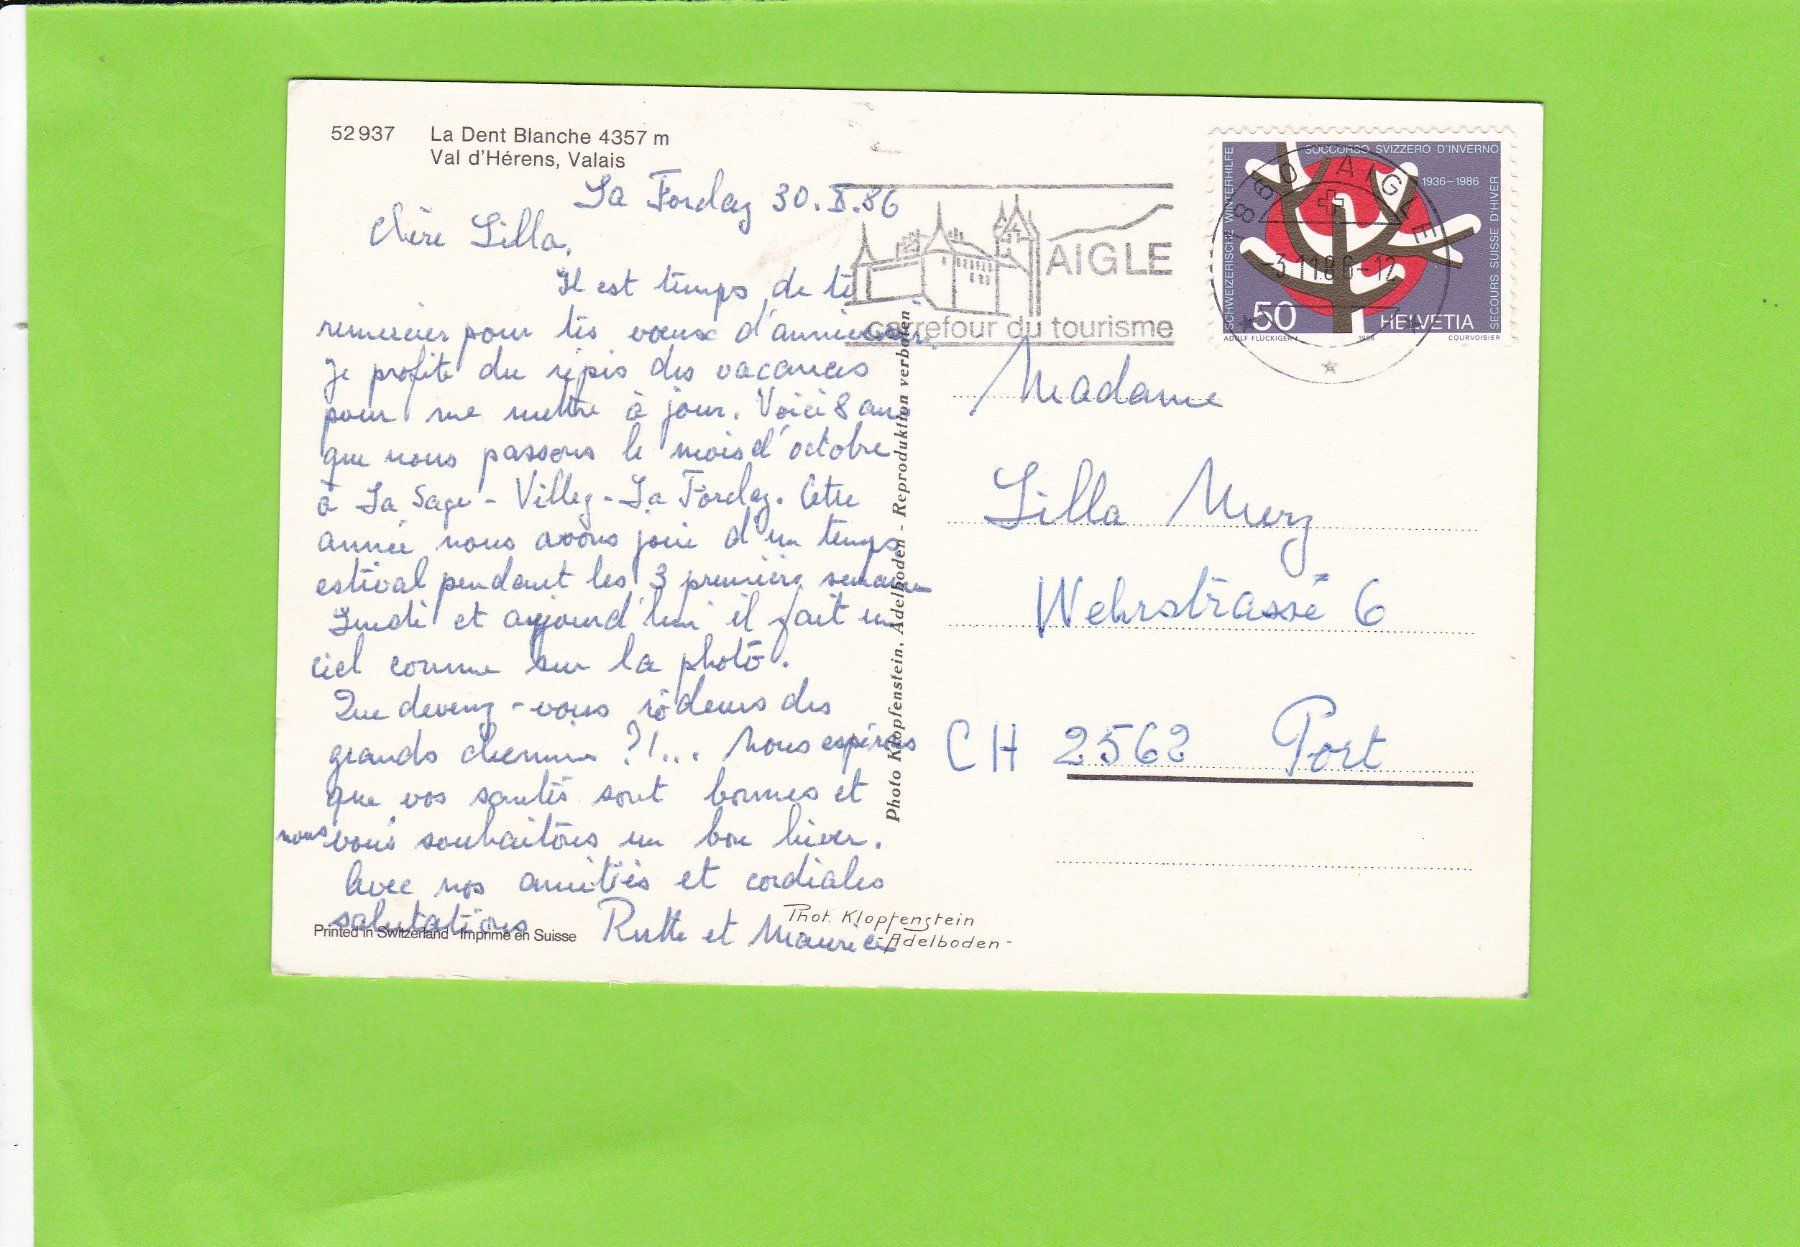 52937 La Dent Blanche 4357 m
Val d'Hérens, Valais
La Forclaz 30.X.86
Chère Lilla,
Il est temps de te
remercier pour tes voeux d'anniversaire.
Je profite du répis des vacances
pour me mettre à jour. Voici 8 ans
que nous passons le mois d'octobre
à La Sage - Villaz - La Forclaz. Cette
année nous avons joui d'un temps
estival pendant les 3 premières semaines
Lundi et aujourd'hui il fait un
ciel comme sur la photo.
Que devenez-vous rôdeurs des
grands chemins ?!... Nous espérons
que vos santés sont bonnes et
nous vous souhaitons un bon hiver.
Avec nos amitiés et cordiales
salutations Ruth et Maurice
Printed in Switzerland - Imprimé en Suisse
Phot. Klopfenstein
- Adelboden -
Photo Klopfenstein, Adelboden - Reproduktion verboten
AIGLE
carrefour du tourisme
1860 AIGLE
-3.11.86-12
SCHWEIZERISCHE WINTERHILFE
SOCCORSO SVIZZERO D'INVERNO
1936-1986
SECOURS SUISSE D'HIVER
50
HELVETIA
ADOLF FLÜCKIGER 1986 COURVOISIER
Madame
Lilla Merz
Wehrstrasse 6
CH 2562 Port